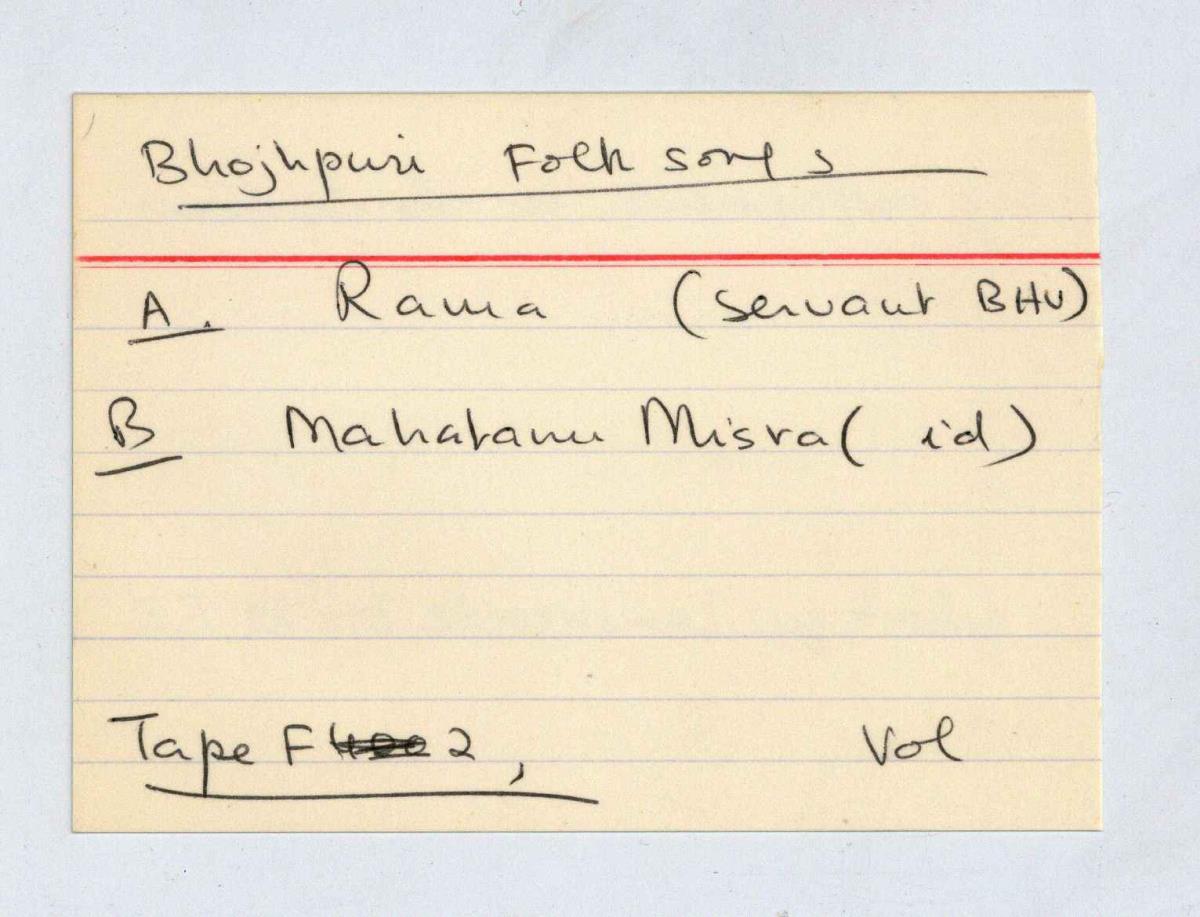 Bhojhpuri Folk songs
A. Rama (servant BHU)
B Mahatanu Misra (id)
Tape F 2, Vol